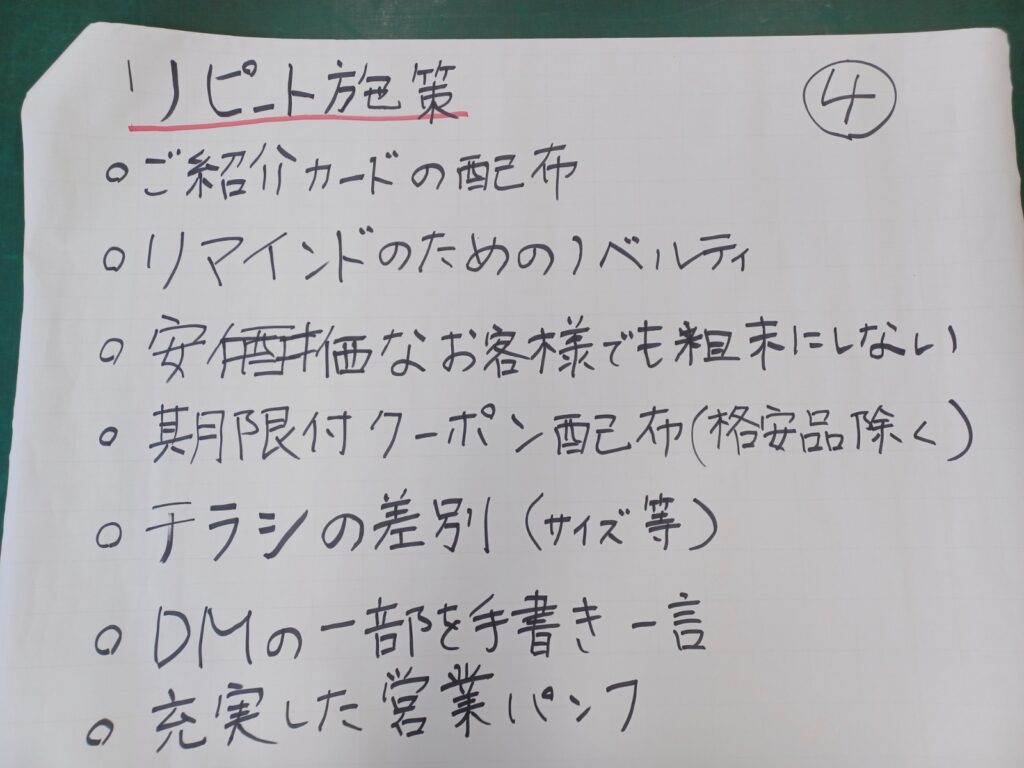 リピート施策
④
○ご紹介カードの配布
○リマインドのためのノベルティ
○安価なお客様でも粗末にしない
○期限付クーポン配布(格安品除く)
○チラシの差別(サイズ等)
○DMの一部を手書き一言
○充実した営業パンフ